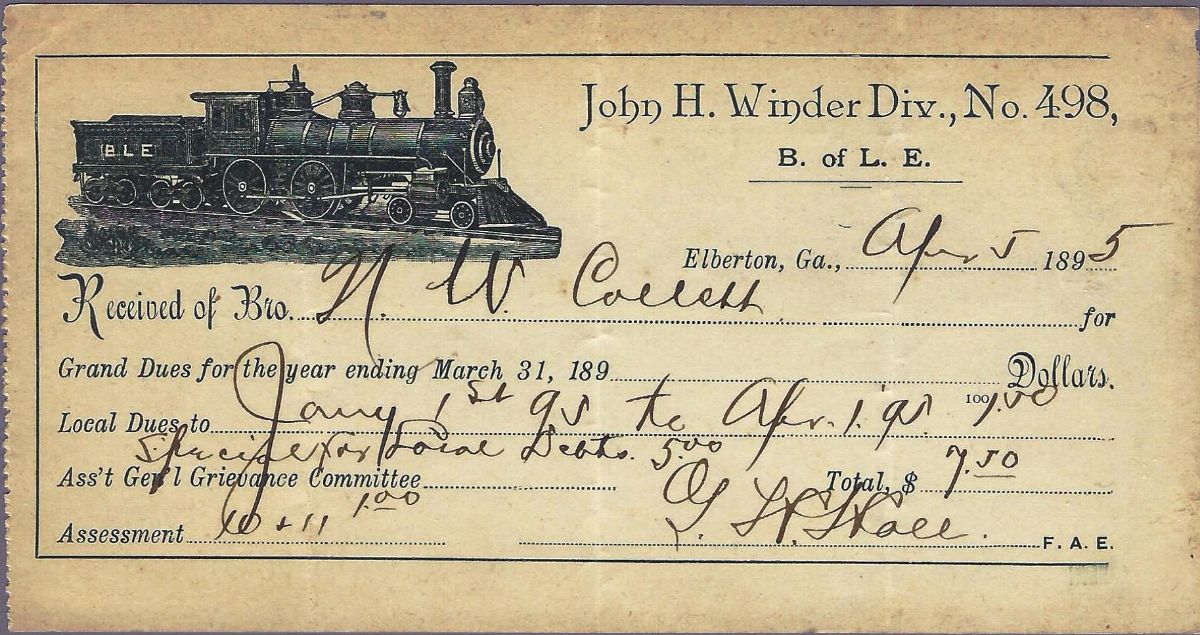 John H. Winder Div., No. 498,
B. of L. E.
B L E
Elberton, Ga., Apr 5 1895
Received of Bro. N. W. Collett for
Grand Dues for the year ending March 31, 189 Dollars.
100
Local Dues to Jany 1st 95 to Apr. 1. 95. 1.00
Special for Local Debts. 5.00
Ass't Gen'l Grievance Committee Total, $ 7.50
Assessment 10 + 11 1.00 H. Hall. F. A. E.